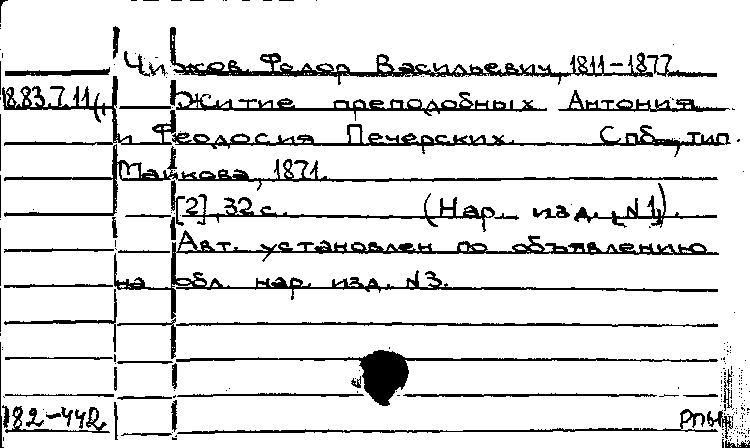 Чижов Федор Васильевич, 1811-1877
18.83.7.11 Житие преподобных Антония
и Феодосия Печерских. Спб, тип.
Майкова, 1871.
[2], 32 с. (Нар. изд. №1).
Авт. установлен по объявлению
на обл. нар. изд. №3.
182-442